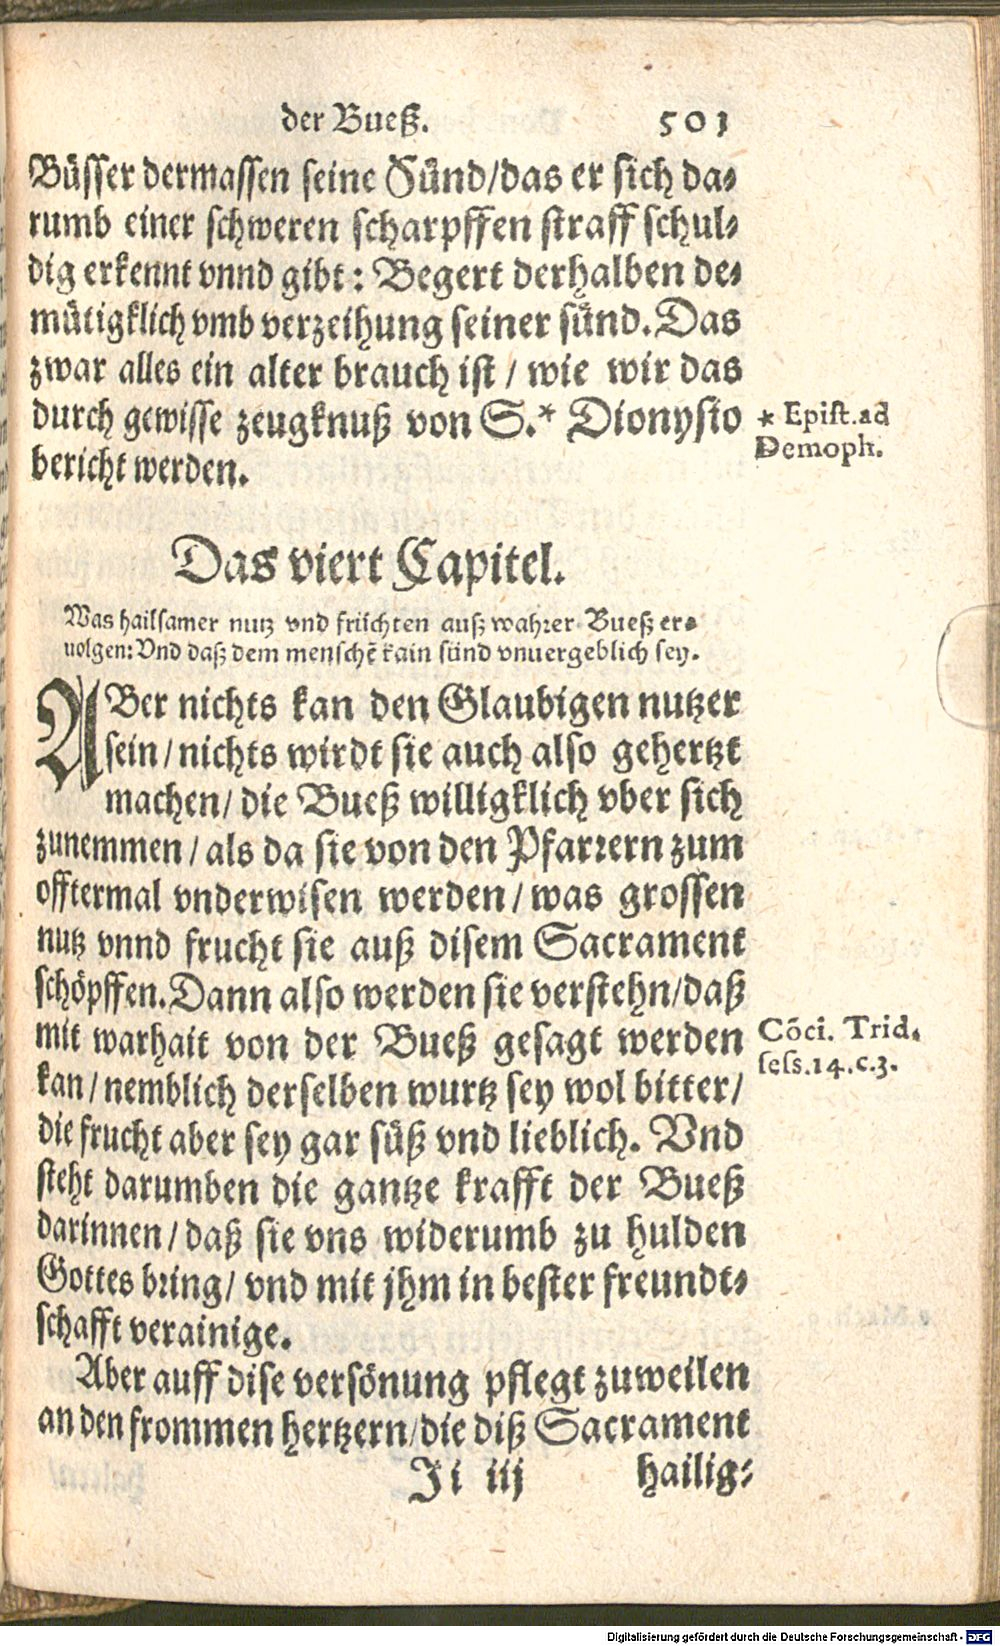 der Bueß. 501
Büsser dermassen seine Sünd/das er sich da-
rumb einer schweren scharpffen straff schul-
dig erkennt vnnd gibt: Begert derhalben de-
mütigklich vmb verzeihung seiner sünd. Das
zwar alles ein alter brauch ist / wie wir das
durch gewisse zeugknuß von S.* Dionysio
bericht werden.
* Epist. ad
Demoph.
Das viert Capitel.
Was hailsamer nutz vnd früchten auß wahrer Bueß er-
uolgen: Vnd daß dem menschẽ kain sünd vnuergeblich sey.
ABer nichts kan den Glaubigen nutzer
sein / nichts wirdt sie auch also gehertzt
machen/ die Bueß willigklich vber sich
zunemmen / als da sie von den Pfarrern zum
offtermal vnderwisen werden / was grossen
nutz vnnd frucht sie auß disem Sacrament
schöpffen. Dann also werden sie verstehn/daß
mit warhait von der Bueß gesagt werden
kan / nemblich derselben wurtz sey wol bitter/
die frucht aber sey gar süß vnd lieblich. Vnd
steht darumben die gantze krafft der Bueß
darinnen / daß sie vns widerumb zu hulden
Gottes bring/ vnd mit jhm in bester freundt-
schafft verainige.
Cõci. Trid.
sess.14.c.3.
Aber auff dise versönung pflegt zuweilen
an den frommen hertzern/die diß Sacrament
Ji iij hailig-
Digitalisierung gefördert durch die Deutsche Forschungsgemeinschaft - DFG